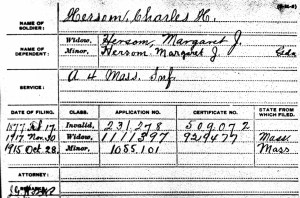 NAME OF SOLDIER: Hersom, Charles H.
NAME OF DEPENDENT: Widow, Hersom, Margaret J.
Minor, Hersom Margaret J
SERVICE: A 4 Mass. Inf.
DATE OF FILING. CLASS. APPLICATION NO. CERTIFICATE NO. STATE FROM WHICH FILED.
1877 17 Invalid, 231,278 509,072
1917 Nov. Widow, 1111397 929477 Mass.
1915 Oct. 28. Minor, 1055.101 Mass
ATTORNEY:
REMARKS: